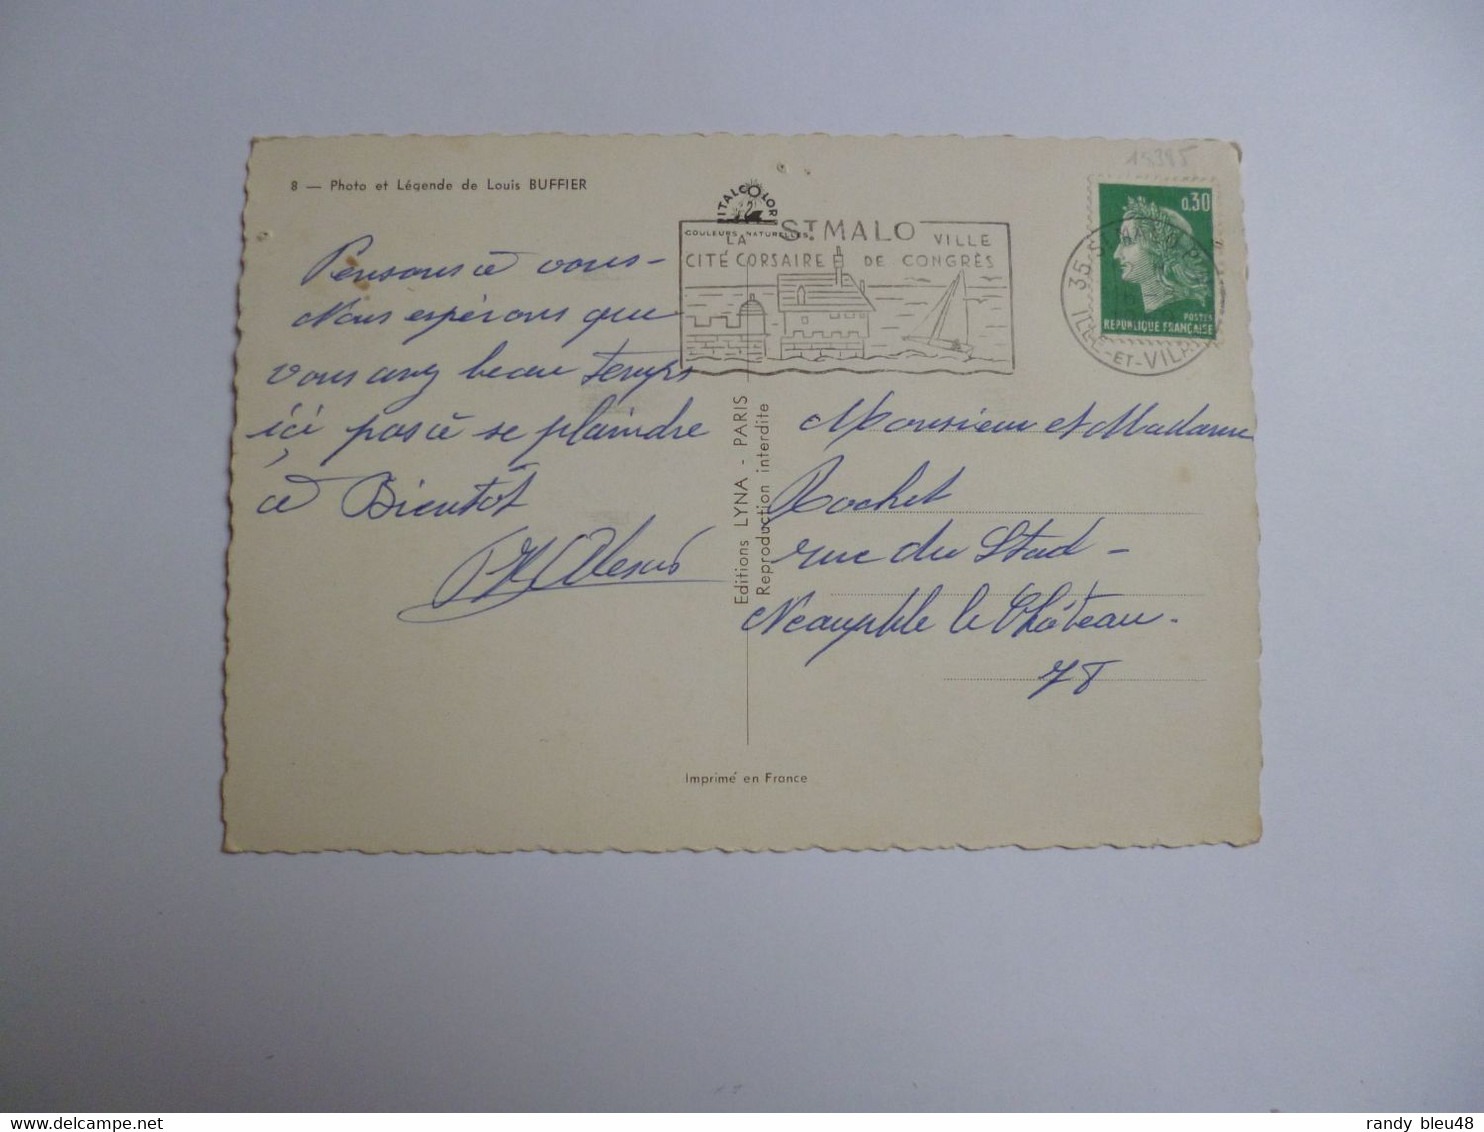 15395
8 — Photo et Légende de Louis BUFFIER
ITALCOLOR
COULEURS NATURELLES
LA ST MALO VILLE
CITÉ CORSAIRE DE CONGRÈS
0,30
POSTES
REPUBLIQUE FRANÇAISE
35 ST MALO
ILLE-ET-VILAINE
Pensons à vous -
Nous espérons que
vous avez beau temps
içi pas à se plaindre
à Bientôt
Editions LYNA - PARIS
Reproduction interdite
Monsieur et Madame
Rochet
rue du Stad -
Neauphle le Château -
78
Imprimé en France
delcampe.net
randy_bleu48